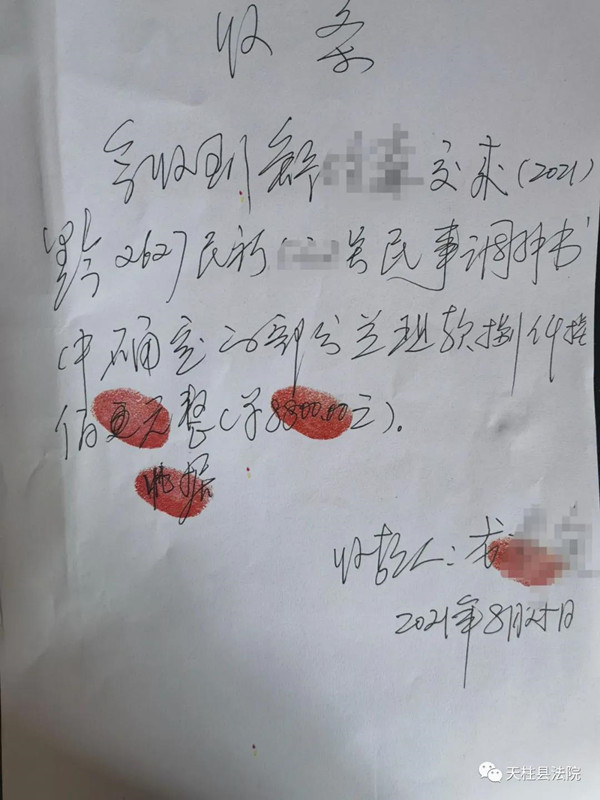 收条
今收到 交来(2021)
黔2627民初 号民事调解书
中确定的部分兑现款捌仟
佰 元整(￥8300.00元)。
此据
收款人:龙
2021年8月25日
天柱县法院